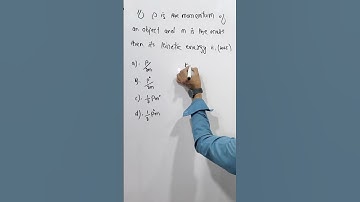 If p is the momentum of
an object and m is the mass
then its kinetic energy is (MCQ)
a). p/2m
b). p²/2m
c). ½ p²m²
d). ½ p²m